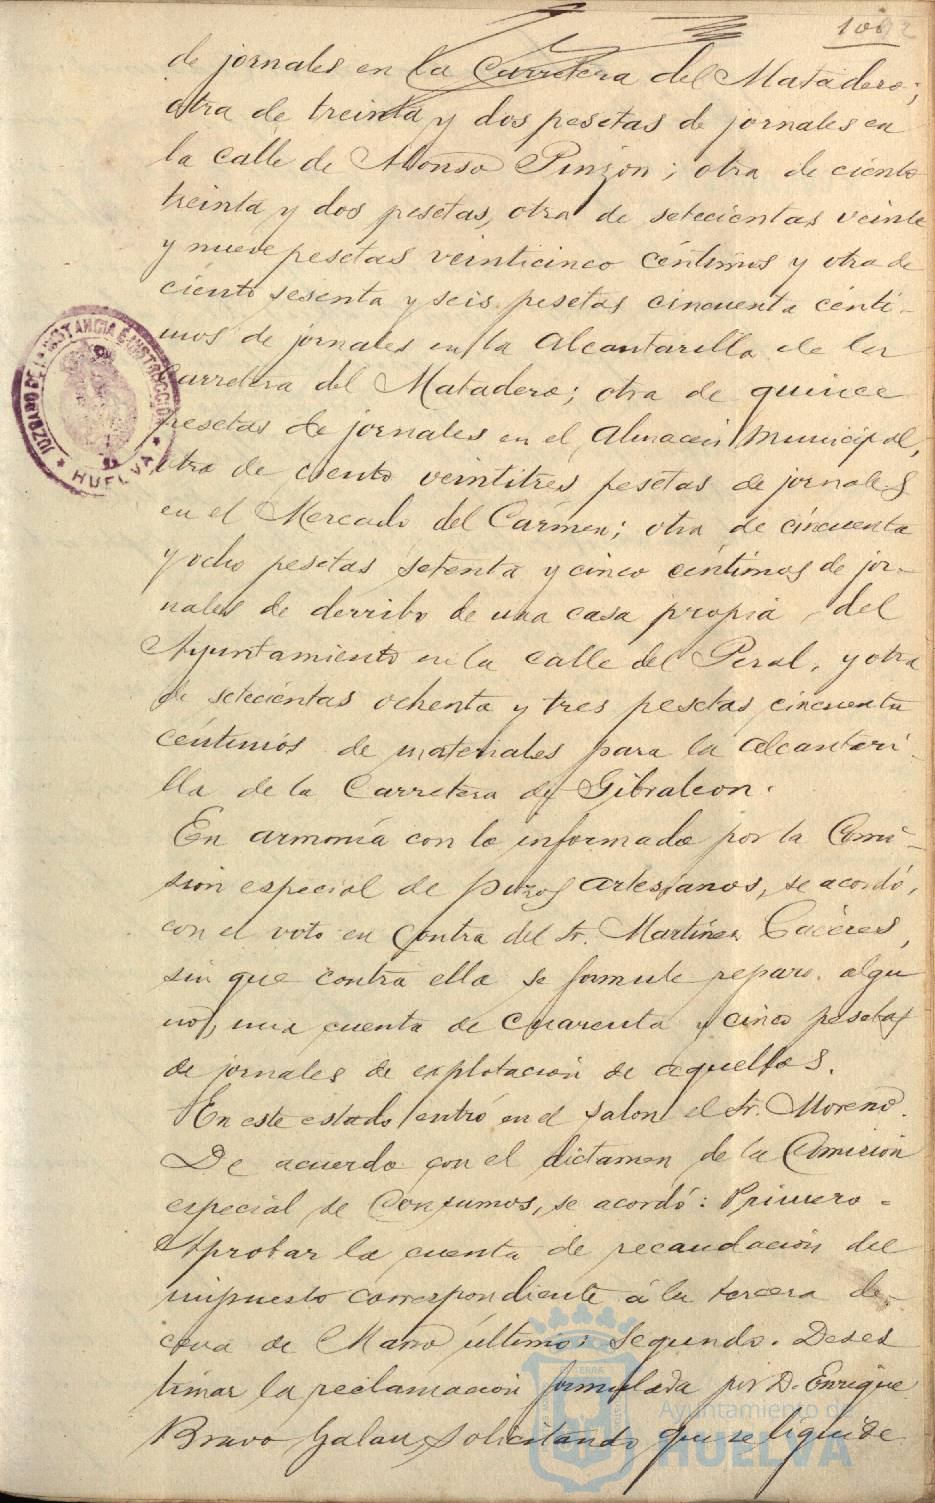 100
de jornales en la Carretera del Matadero;
otra de treinta y dos pesetas de jornales en
la calle de Alonso Pinzon; otra de ciento
treinta y dos pesetas, otra de setecientas veinte
y nueve pesetas veinticinco céntimos y otra de
ciento sesenta y seis pesetas cincuenta cénti-
mos de jornales en la alcantarilla de la
Carretera del Matadero; otra de quince
pesetas de jornales en el Almacén Municipal,
otra de ciento veintitres pesetas de jornales
en el Mercado del Carmen; otra de cincuenta
y ocho pesetas setenta y cinco céntimos de jor-
nales de derribo de una casa propia del
Ayuntamiento en la calle del Peral, y otra
de setecientas ochenta y tres pesetas cincuenta
céntimos de materiales para la alcantari-
lla de la Carretera de Gibraleon.
En armonía con lo informado por la Comi-
sion especial de pozos artesianos, se acordó,
con el voto en contra del Sr. Martinez Cáceres,
sin que contra ella se formule reparo algu
no, una cuenta de cuarenta y cinco pesetas
de jornales de explotación de aquellos.
En este estado entró en el salon el Sr. Moreno.
De acuerdo con el dictamen de la Comision
especial de Consumos, se acordó: Primero.
Aprobar la cuenta de recaudación del
impuesto correspondiente á la tercera de-
cena de Marzo último: Segundo. Deses
timar la reclamación formulada por D. Enrique
Bravo Galan, solicitando que se liquide
JUZGADO DE 1ª INSTANCIA E INSTRUCCION
* HUELVA *
Ayuntamiento de
HUELVA